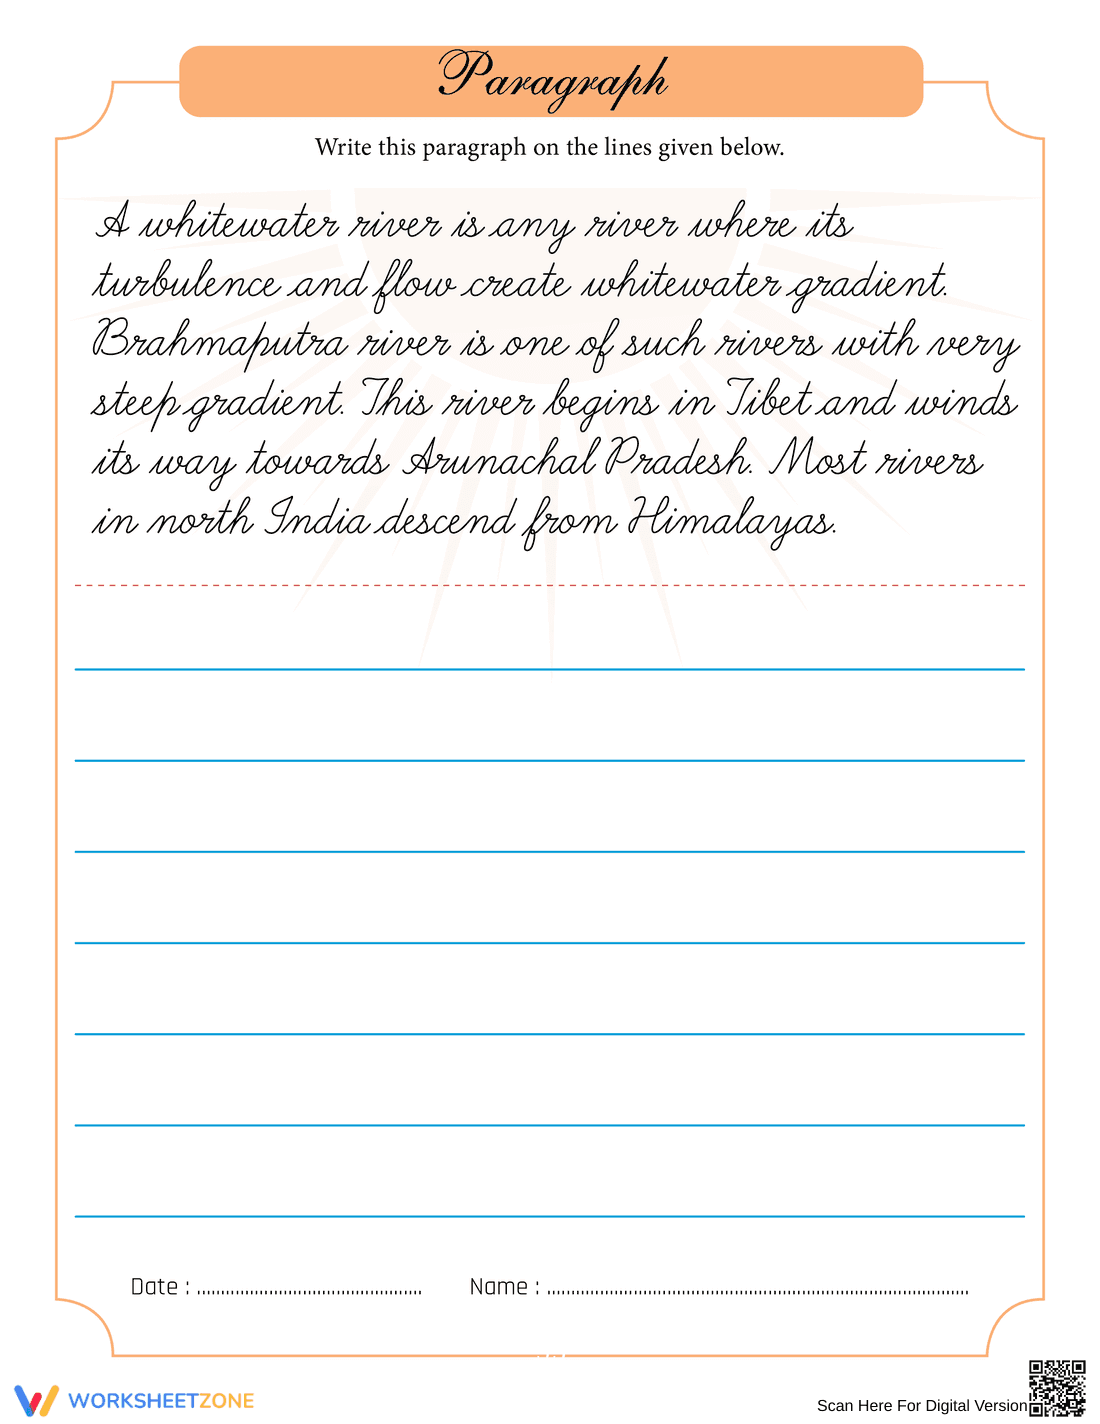 Paragraph
Write this paragraph on the lines given below.
A whitewater river is any river where its
turbulence and flow create whitewater gradient.
Brahmaputra river is one of such rivers with very
steep gradient. This river begins in Tibet and winds
its way towards Arunachal Pradesh. Most rivers
in north India descend from Himalayas.
Date : ..............................................
Name : ......................................................................................
WORKSHEETZONE
Scan Here For Digital Version